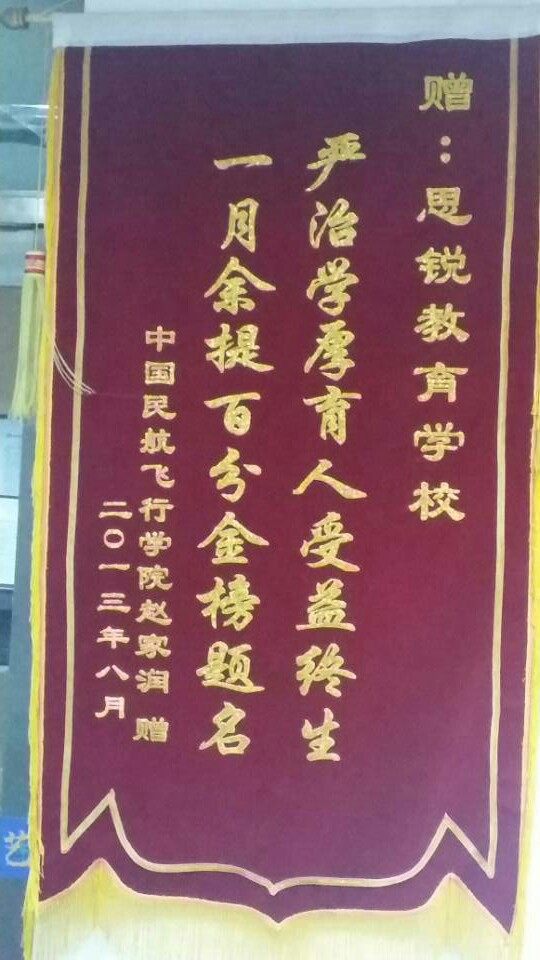 赠：思锐教育学校
严治学厚育人受益终生
一月余提百分金榜题名
中国民航飞行学院赵家润 赠
二〇一三年八月
艺